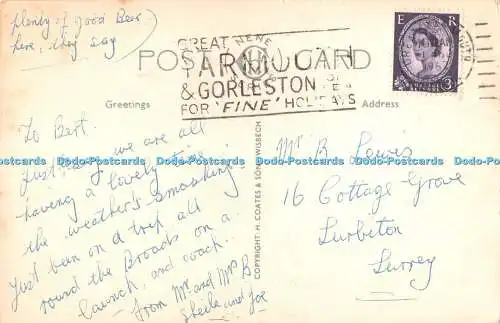 plenty of good Beer
here, they say
POST CARD
GREAT
YARMOUTH
& GORLESTON
FOR 'FINE' HOLIDAYS
NENE
E R
3D
Greetings
Address
To Bert.
Just to say we are all
having a lovely time
the weather's smashing.
Just been on a trip all
round the Broads on a
launch, and coach.
from Mr. and Mrs B
Sheila and Joe
COPYRIGHT H. COATES & SON, WISBECH
Mr B Lewis
16 Cottage Grove
Surbiton
Surrey
Dodo-Postcards Dodo-Postcards Dodo-Postcards Dodo-Postcards Dodo-Postcards